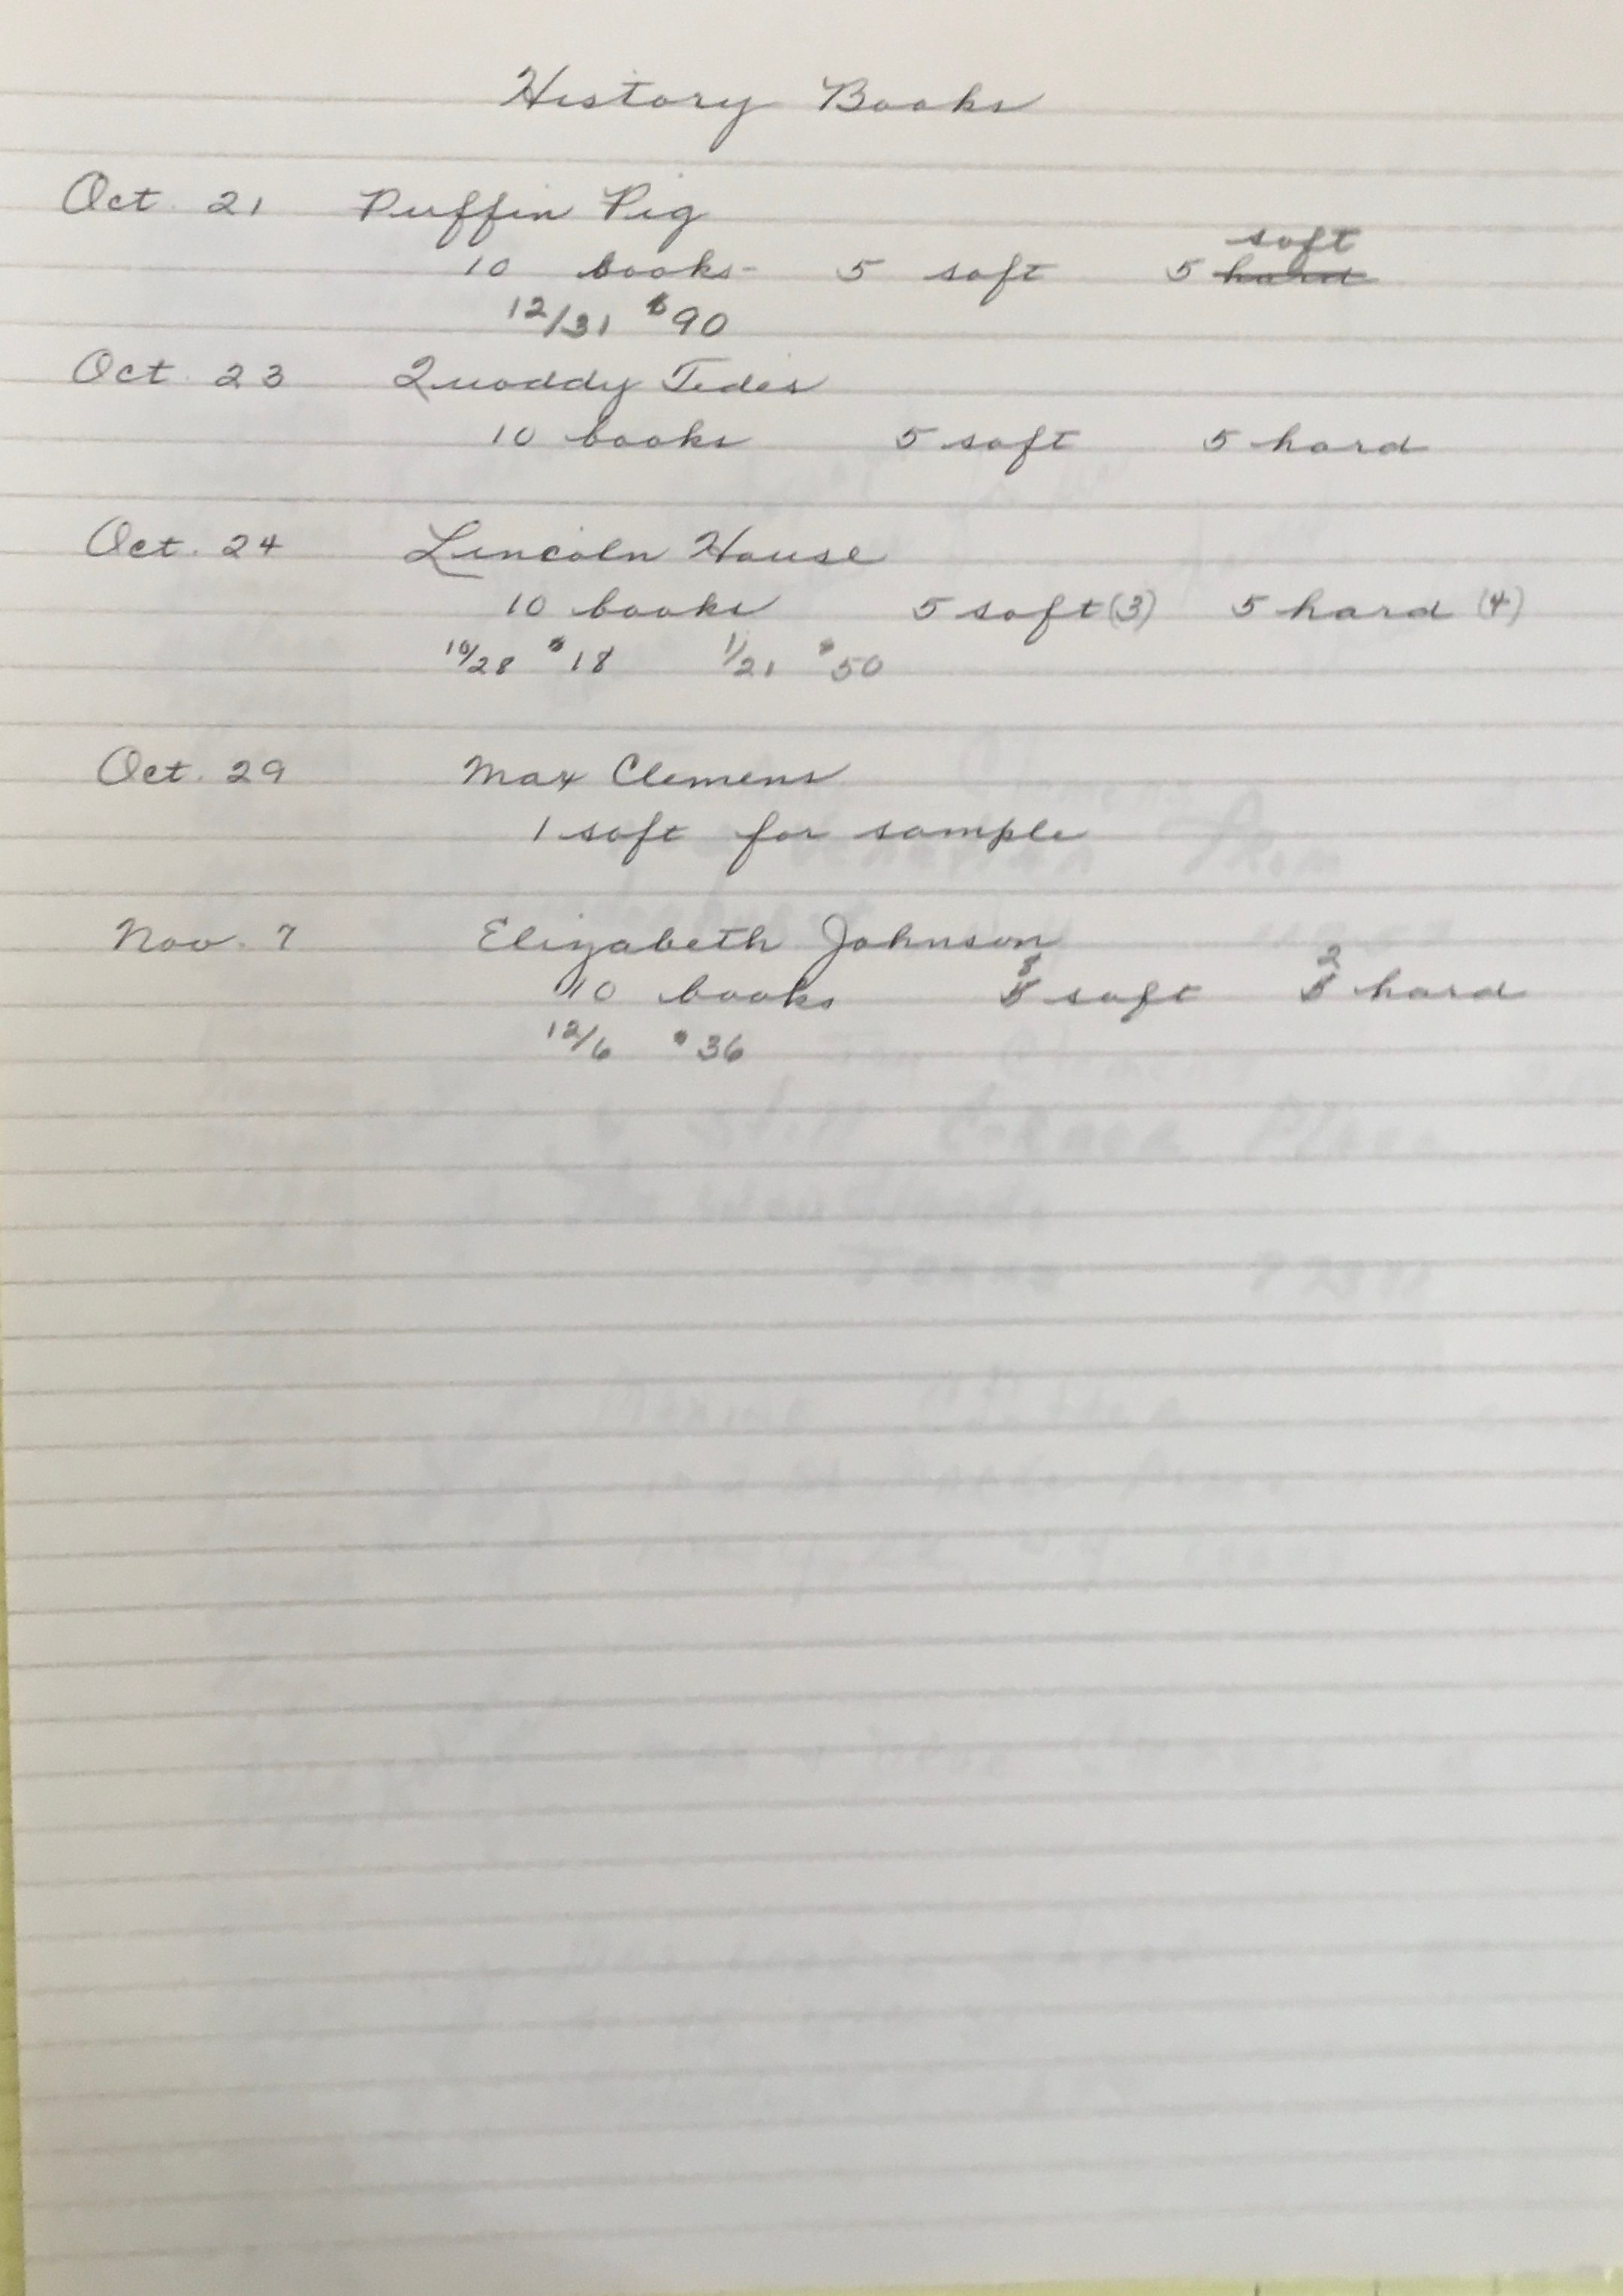 History Books
Oct. 21 Puffin Pig
soft
10 books - 5 soft 5 hard
12/31 $90
Oct. 23 Quoddy Tides
10 books 5 soft 5 hard
Oct. 24 Lincoln House
10 books 5 soft (3) 5 hard (4)
10/28 $18 1/21 $50
Oct. 29 Max Clemens
1 soft for sample
Nov. 7 Elizabeth Johnson
8 2
10 books 5 soft 5 hard
12/6 $36